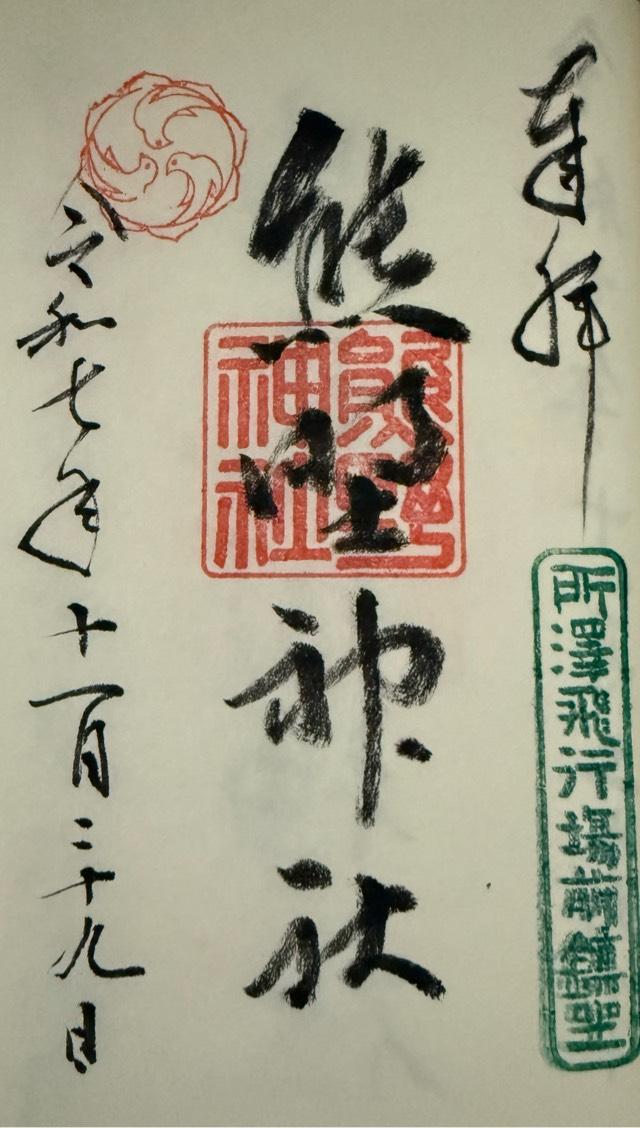 奉拝
所澤飛行場前鎮座
熊野神社
熊野
神社
令和七年十一月二十九日